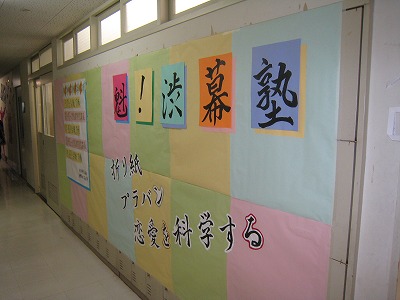 魁!渋幕塾
折り紙
プラバン
恋愛を科学する